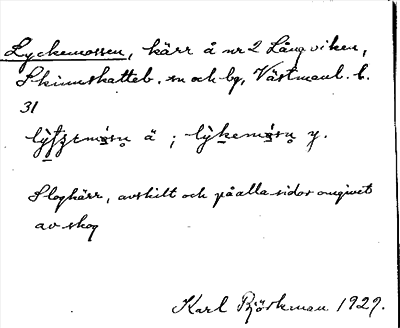 Lyckemossen, kärr å nr 2 Långviken,
Skinnskatteb. sn och bg, Västmanl. l.
31
ä ; y.
Slogkärr, avskilt och på alla sidor omgivet
av skog
Karl Björkman 1929.